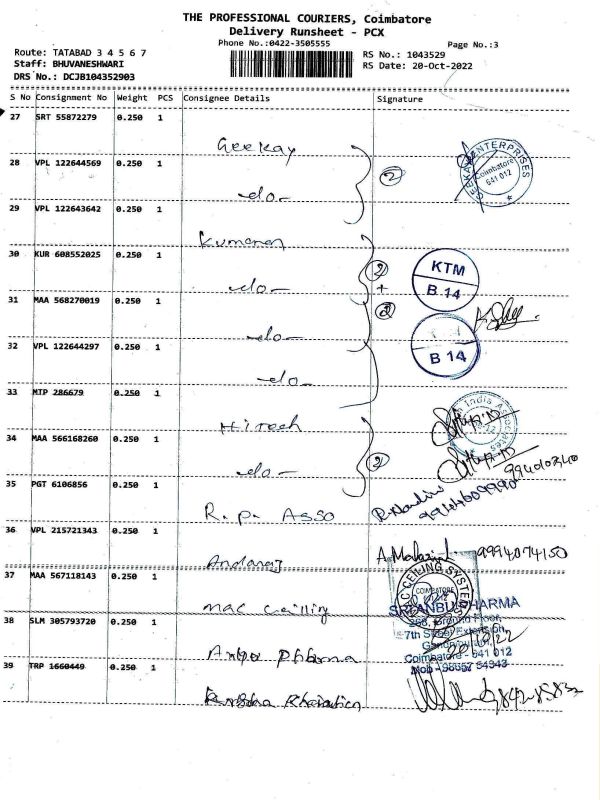 THE PROFESSIONAL COURIERS, Coimbatore
Delivery Runsheet - PCX
Phone No.:0422-3505555
Page No.:3
Route: TATABAD 3 4 5 6 7
RS No.: 1043529
Staff: BHUVANESHWARI
RS Date: 20-Oct-2022
DRS No.: DCJB104352903
S No Consignment No Weight PCS Consignee Details Signature
27 SRT 55872279 0.250 1
Geekay
28 VPL 122644569 0.250 1
-do-
2
GEEKAY ENTERPRISES
Coimbatore
641 012
29 VPL 122643642 0.250 1
Kumaran
30 KUR 608552025 0.250 1
-do-
2
+
KTM
B 14
31 MAA 568270019 0.250 1
-do-
2
32 VPL 122644297 0.250 1
-do-
B 14
33 MTP 286679 0.250 1
Hitech
India Associates
34 MAA 566168260 0.250 1
-do-
2
35 PGT 6106856 0.250 1
R.P. ASSO
36 VPL 215721343 0.250 1
9994074150
37 MAA 567118143 0.250 1
mac
CEILING SYSTEMS
COIMBATORE
38 SLM 305793720 0.250 1
SRI ANBU PHARMA
Ground Floor,
7th Street Extension,
Coimbatore - 641 012
39 TRP 1660449 0.250 1